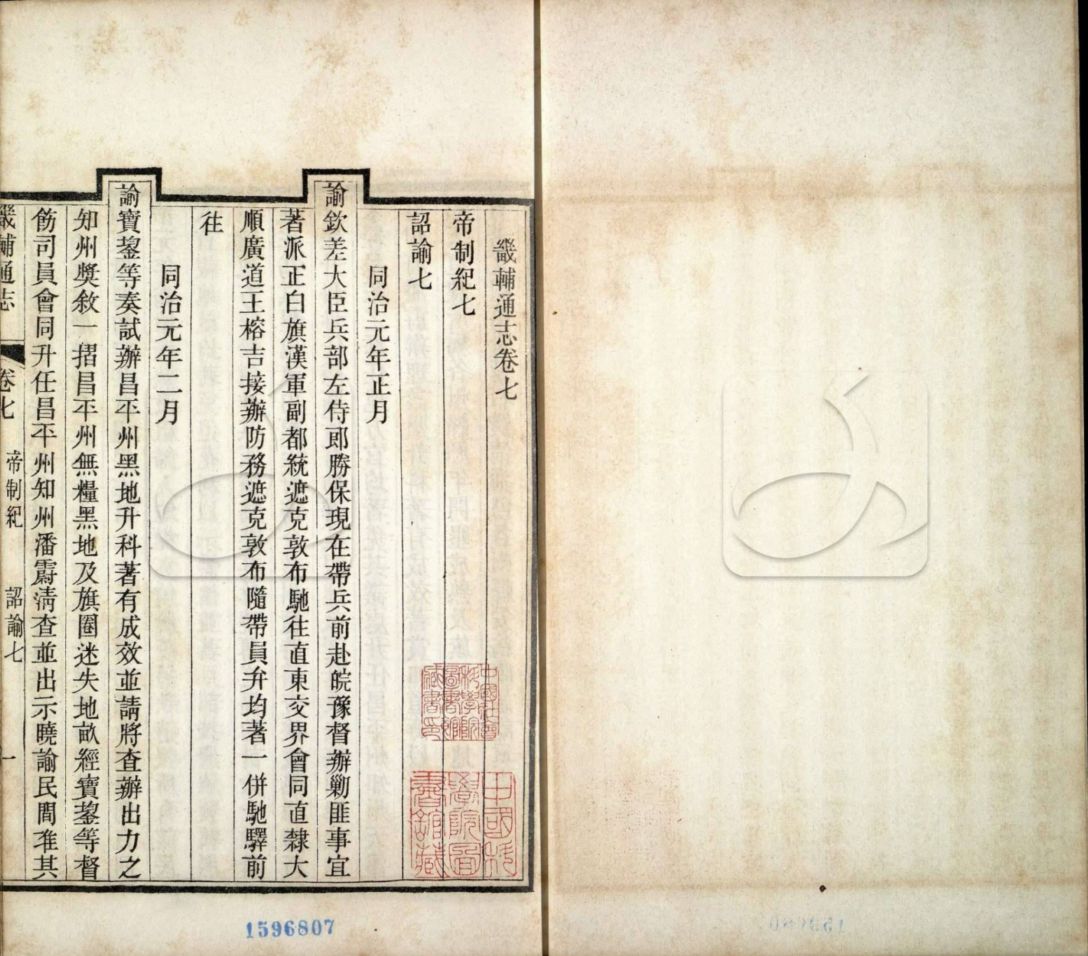 畿輔通志卷七
帝制紀七
詔諭七
同治元年正月
諭欽差大臣兵部左侍郎勝保現在帶兵前赴皖豫督辦勦匪事宜
著派正白旗漢軍副都統遮克敦布馳往直東交界會同直隸大
順廣道王榕吉接辦防務遮克敦布隨帶員弁均著一併馳驛前
往
同治元年二月
諭寶鋆等奏試辦昌平州黑地升科著有成效並請將查辦出力之
知州奬敘一摺昌平州無糧黑地及旗圈迷失地畝經寶鋆等督
飭司員會同升任昌平州知州潘霨淸查並出示曉諭民間准其
畿輔通志
卷七
帝制紀
詔諭七
一
中國科學院圖書館藏
1596807